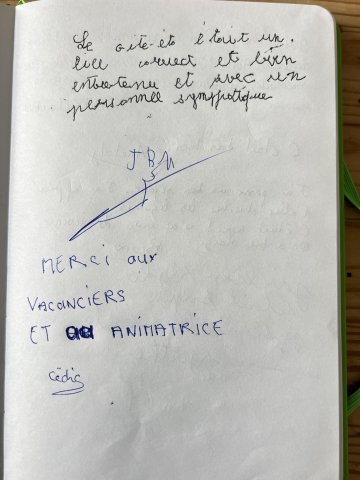 Le gite-etè ètait un
lieu correct et bien
entretenu et avec un
personnel sympatique
J B M
MERCI aux
VACANCIERS
ET ANIMATRICE
Cédric